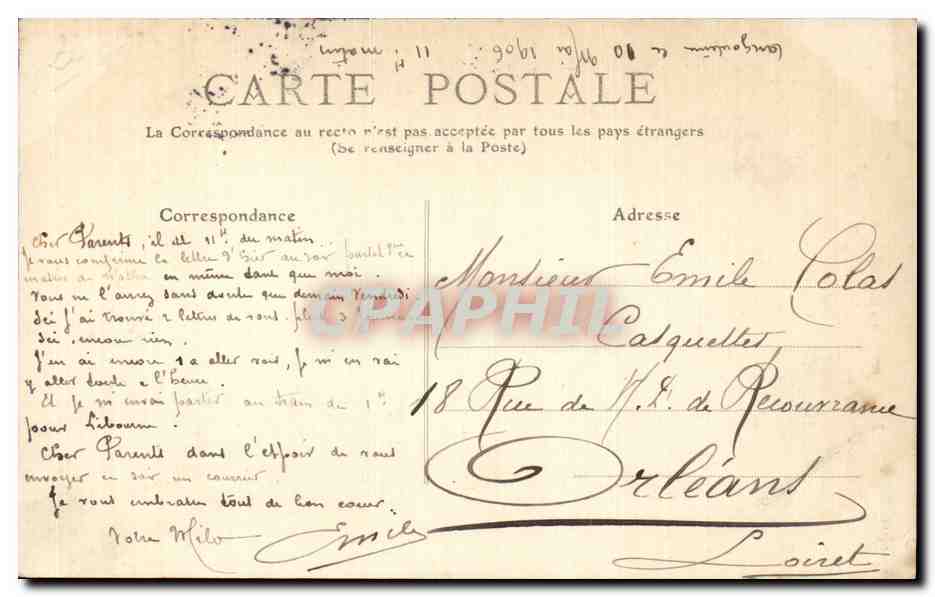 Langoiran le 10 Mai 1906. 11H matin
CARTE POSTALE
La Correspondance au recto n'est pas acceptée par tous les pays étrangers
(Se renseigner à la Poste)
Correspondance
Cher Parents, il est 11H du matin.
Je vous confirme la lettre d'hier au soir
en même temps que moi.
Vous ne l'aurez sans doute que demain Vendredi.
Ici j'ai trouvé 2 lettres de vous. plus 3
Ici, encore rien.
J'en ai encore 1 a aller voir, Je m'en vai
y aller toute a l'heure.
Et Je m'envai partir au train de 1H
pour Libourne.
Cher Parents dans l'espoir de vous
envoyer ce soir un courrier.
Je vous embrasse tout de bon coeur.
Votre Milo
Emile
Adresse
Monsieur Emile Colas
Casquettes
18 Rue de N. D. de Recouvrance
Orléans
Loiret
CPAPHIL